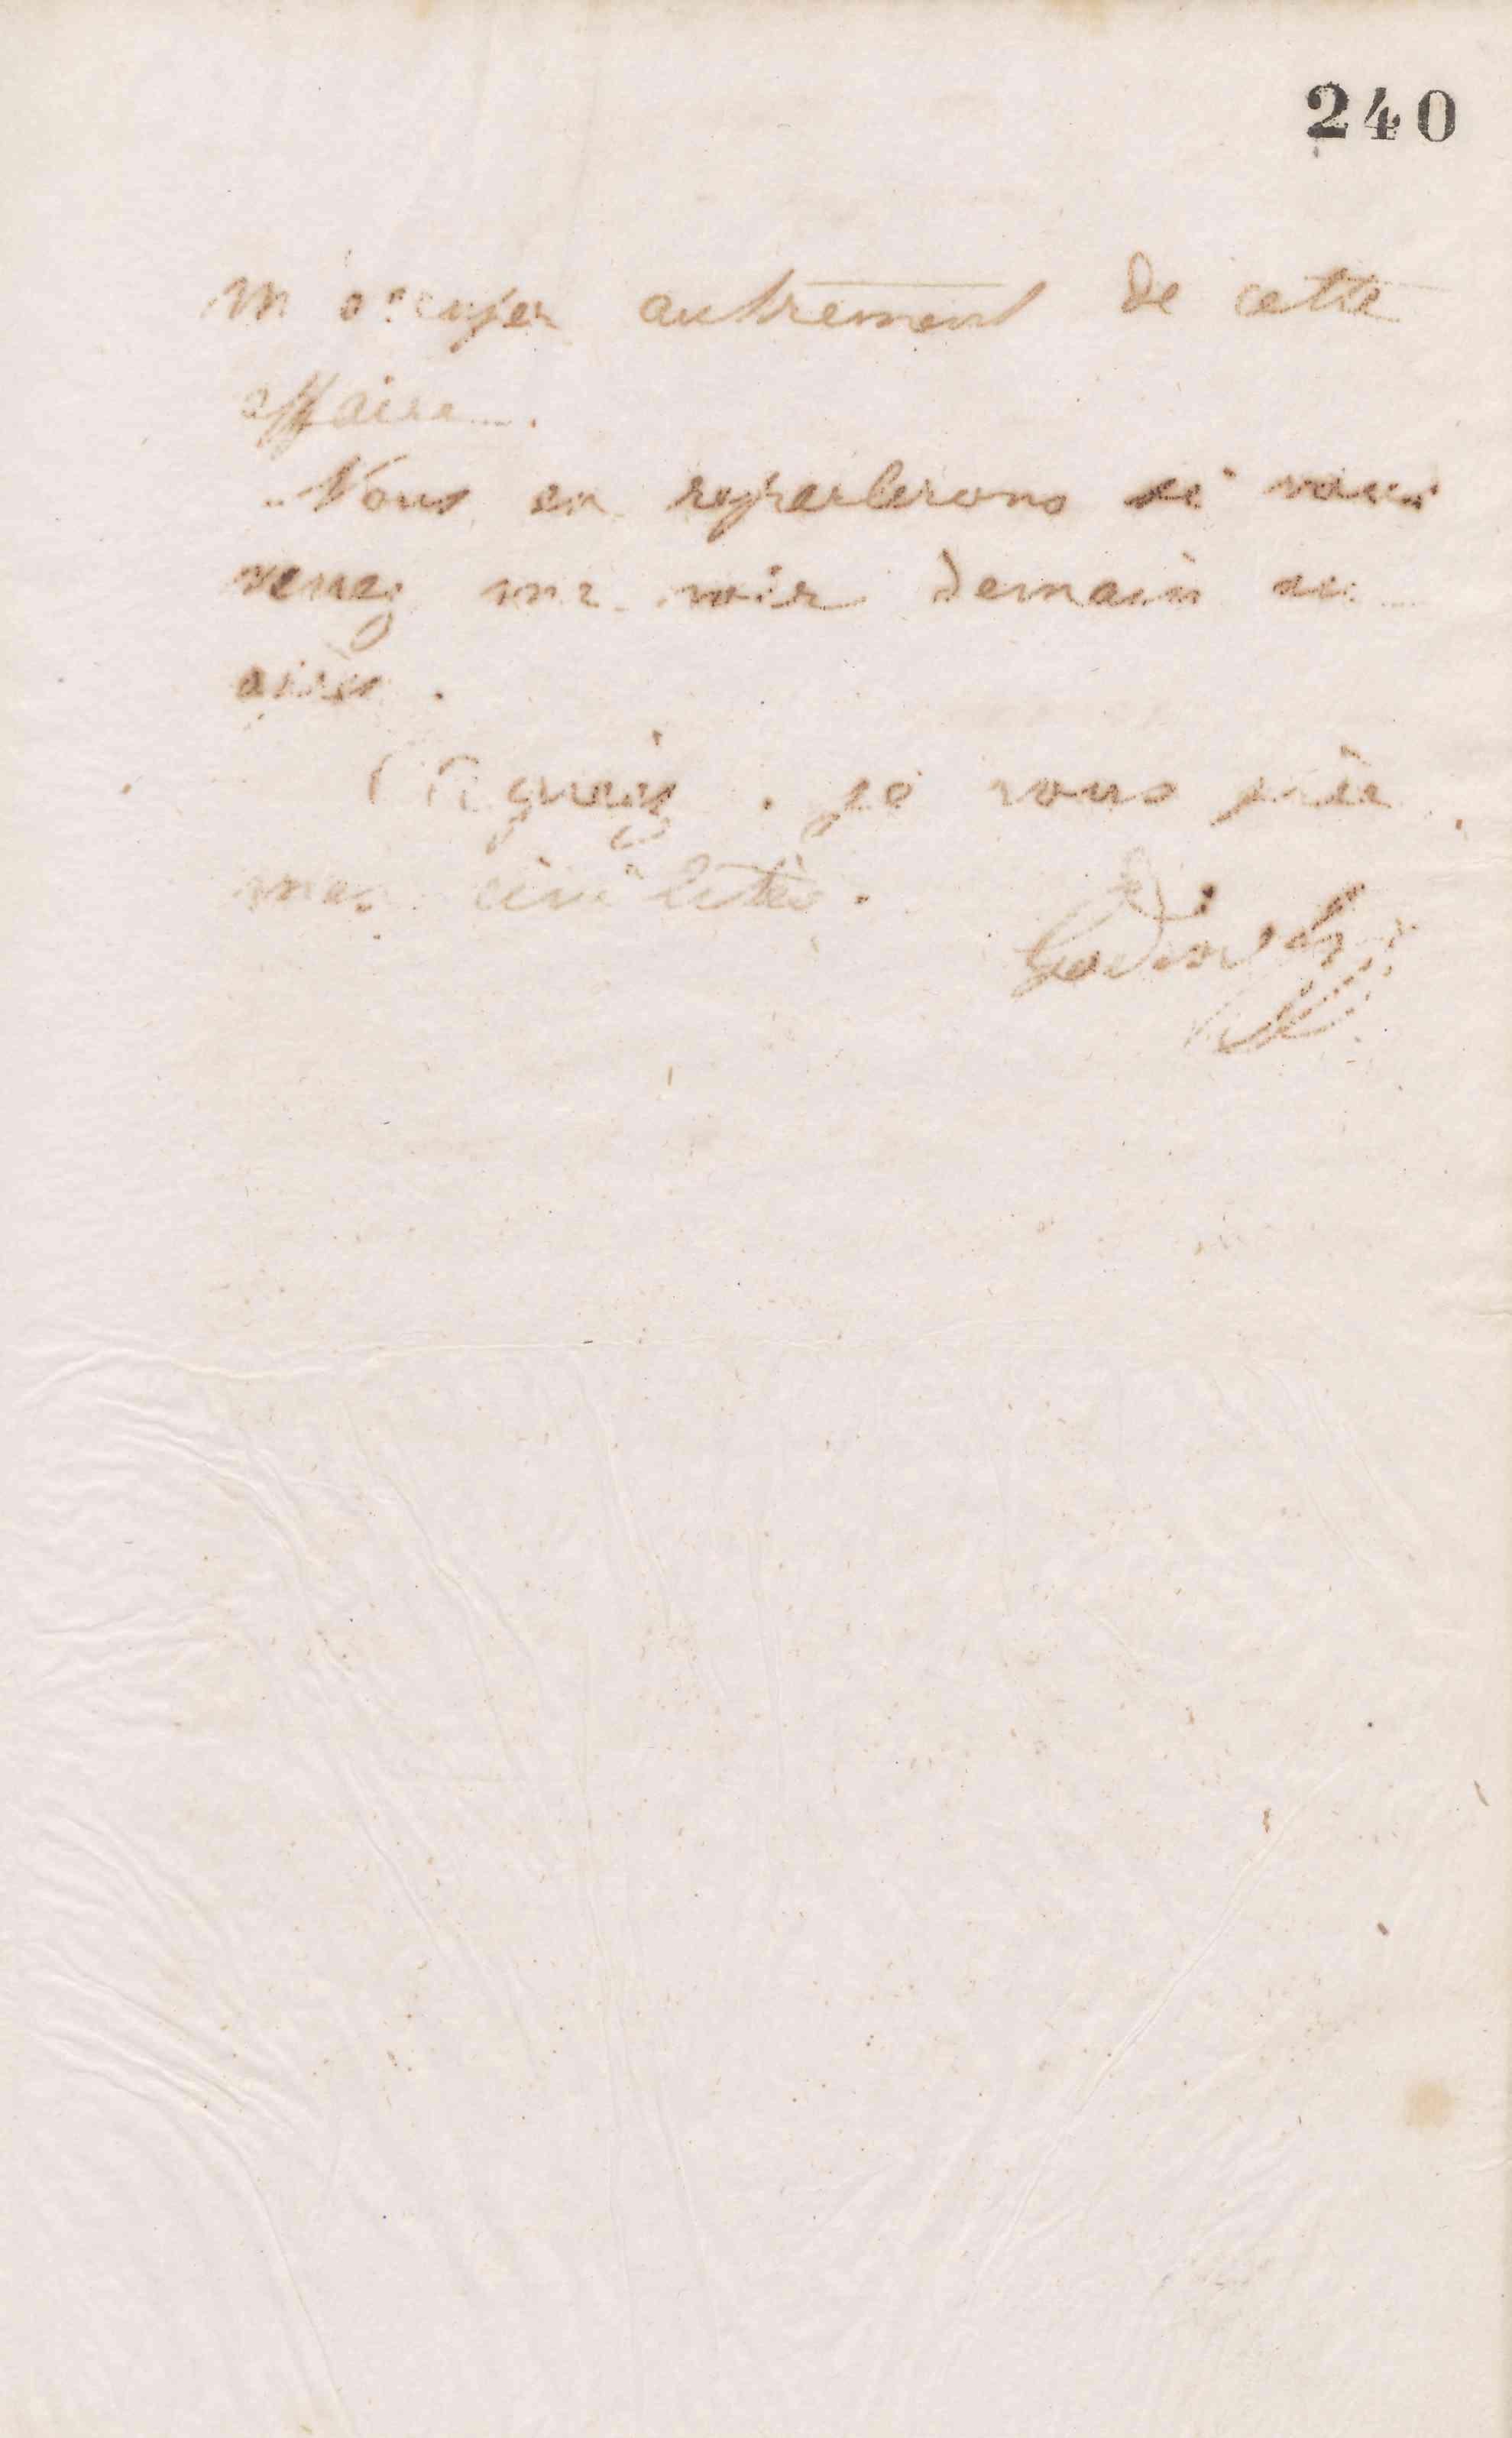 240
m'occuper autrement de cette
affaire.
Nous en reparlerons si vous
venez me voir demain au
soir.
Agréez, je vous prie
mes civilités.
Godin